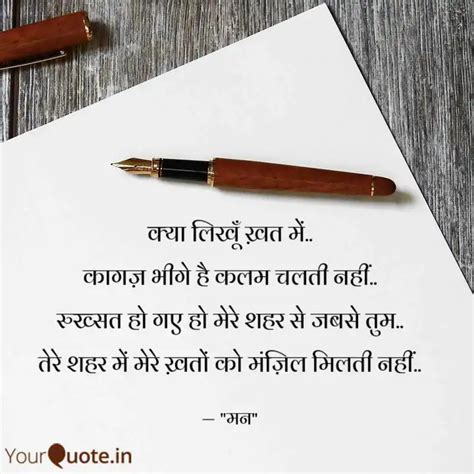 क्या लिखूँ ख़त में..
कागज़ भीगे है कलम चलती नहीं..
रुख्सत हो गए हो मेरे शहर से जबसे तुम..
तेरे शहर में मेरे ख़तों को मंज़िल मिलती नहीं..
– "मन"
YourQuote.in